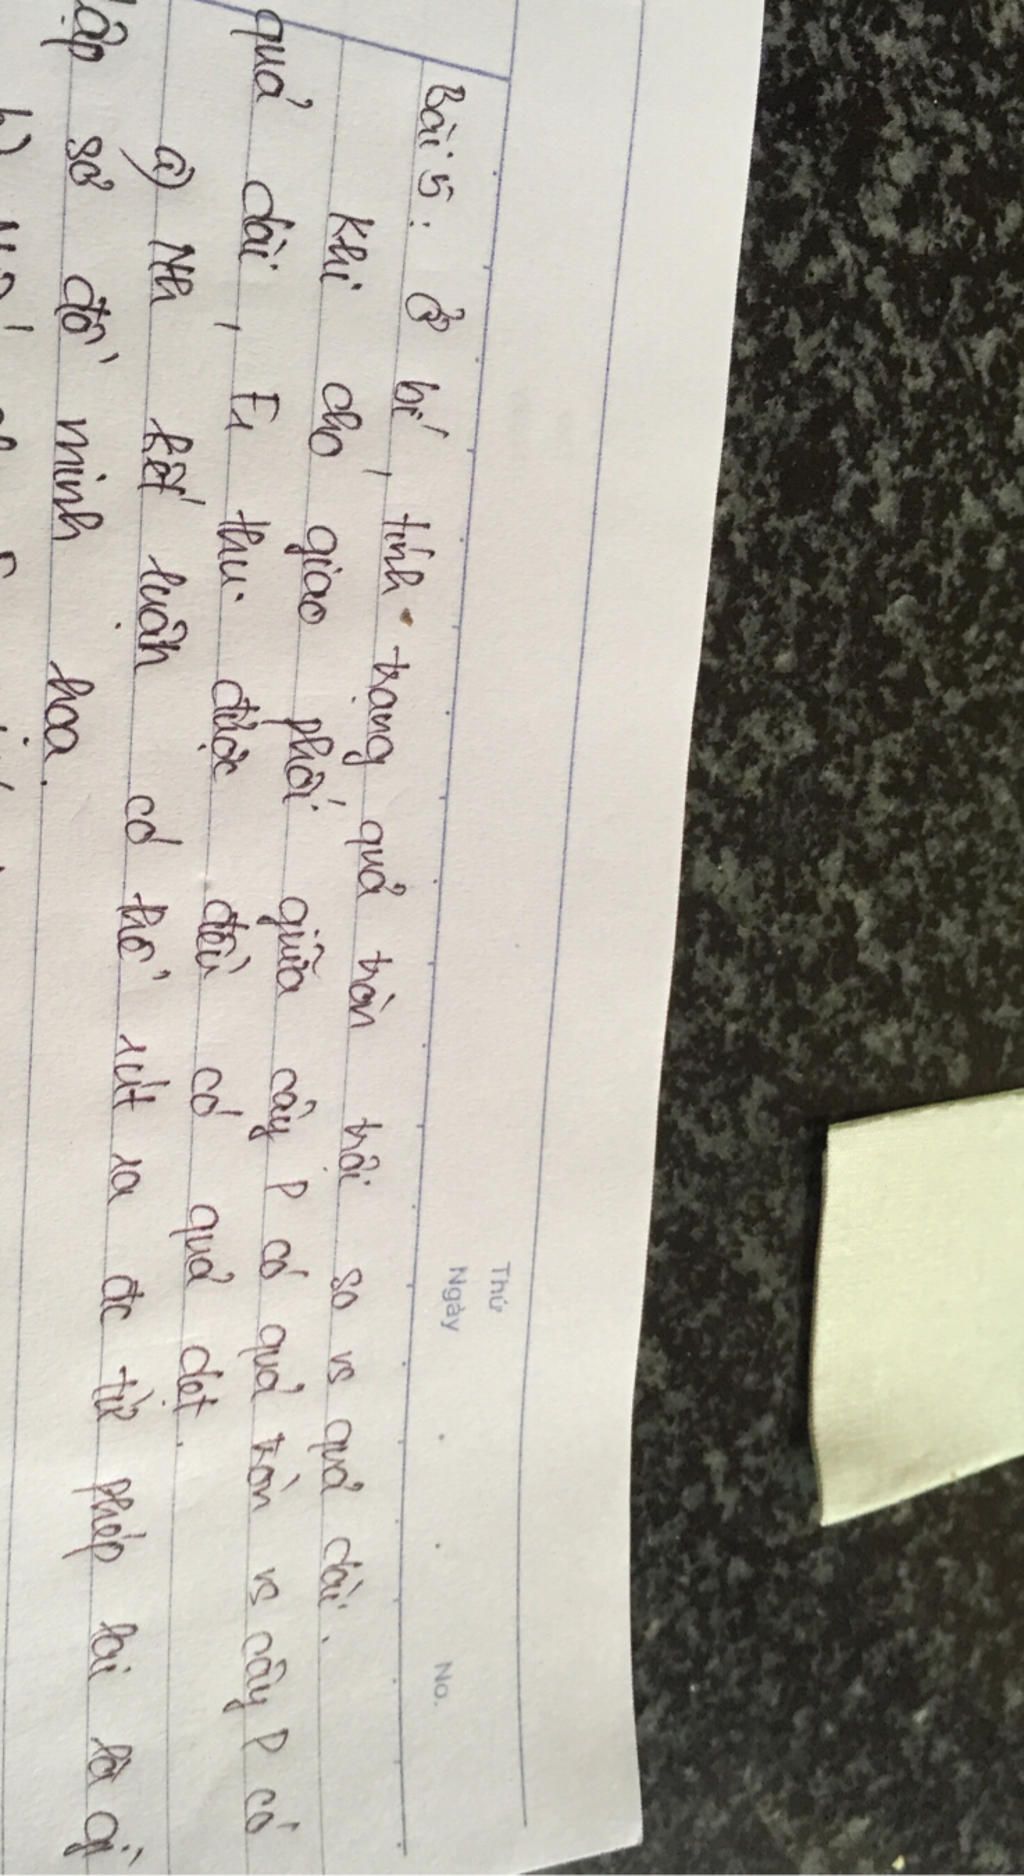 Thứ
Ngày
No.
Bài 5: Ở bí, tính trạng quả tròn trội so vs quả dài.
Khi cho giao phối giữa cây P có quả tròn vs cây P có
quả dài, F1 thu được đều có quả dẹt.
a) Nh kết luận có thể rút ra đc từ phép lai là gì
lập sơ đồ minh hoạ.
b)